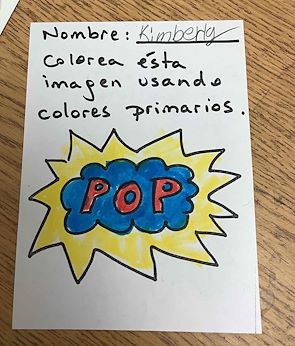 Nombre: Kimberly
Colorea ésta
imagen usando
colores primarios.
POP